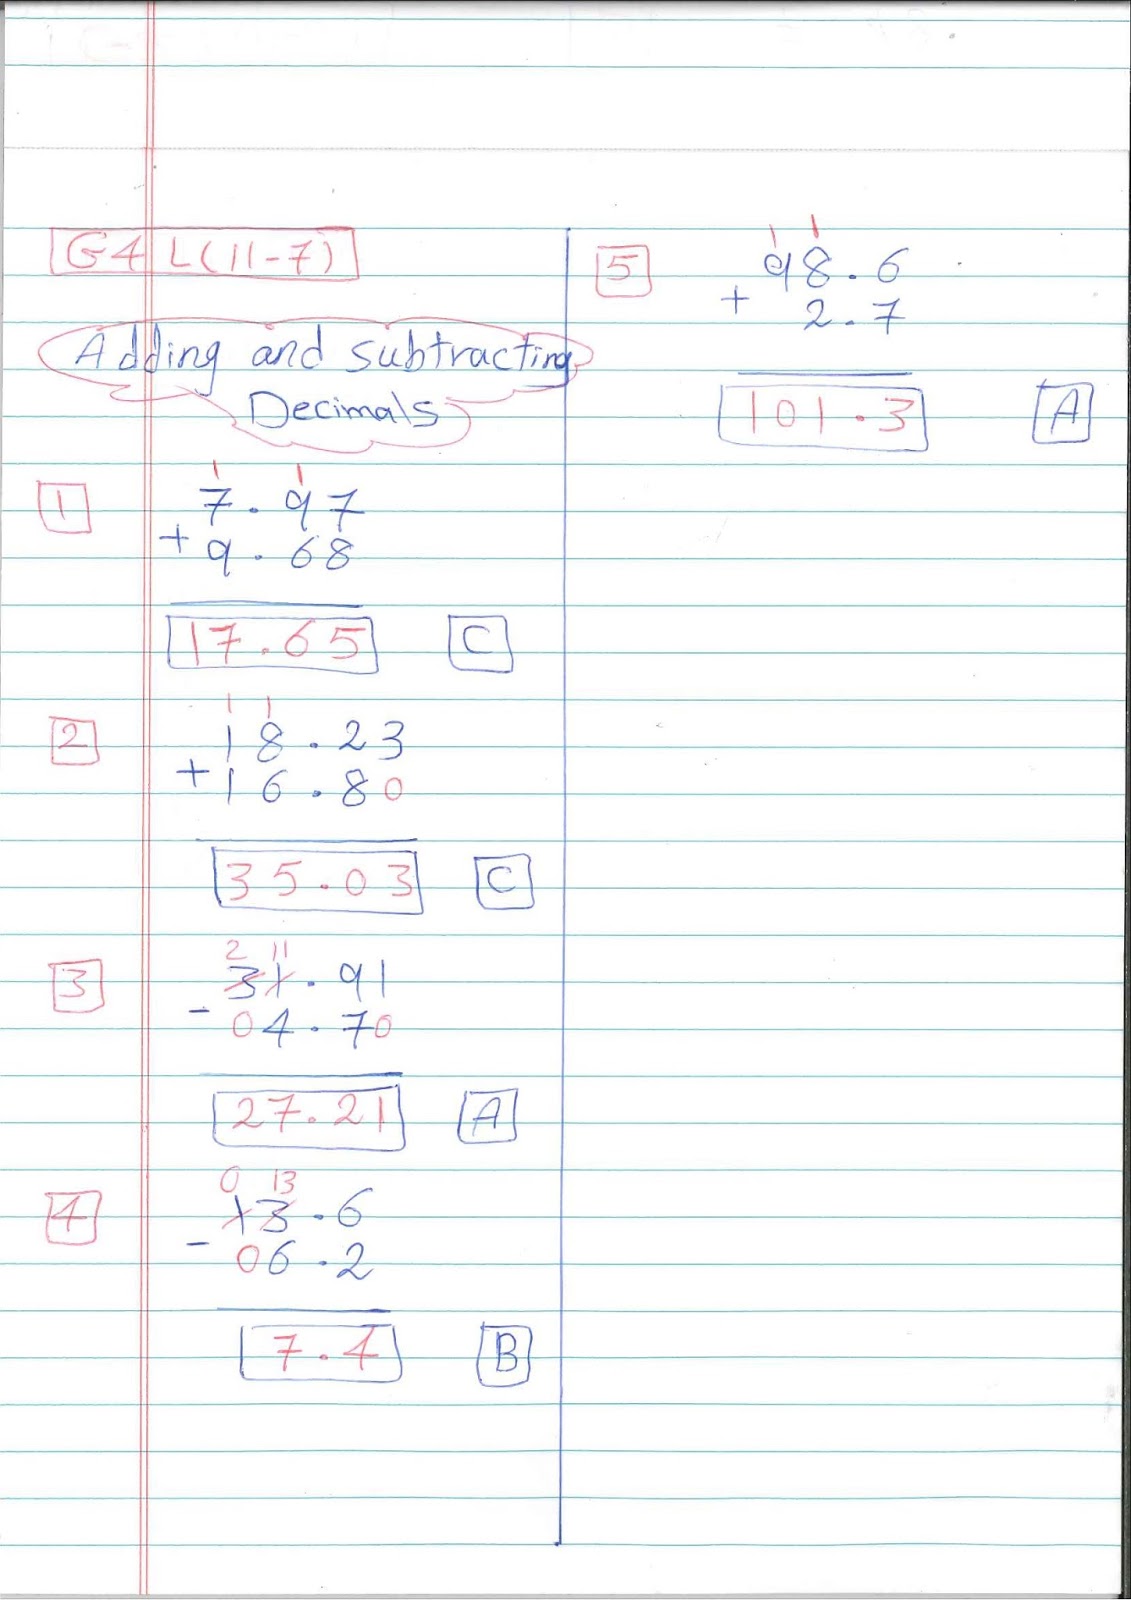 G4 L(11-7)
Adding and subtracting
Decimals
1
1 1
7.97
+ 9.68
17.65 C
2
1 1
18.23
+ 16.80
35.03 C
3
2 11
31.91
- 04.70
27.21 A
4
0 13
13.6
- 06.2
7.4 B
5
1 1
98.6
+ 2.7
101.3 A